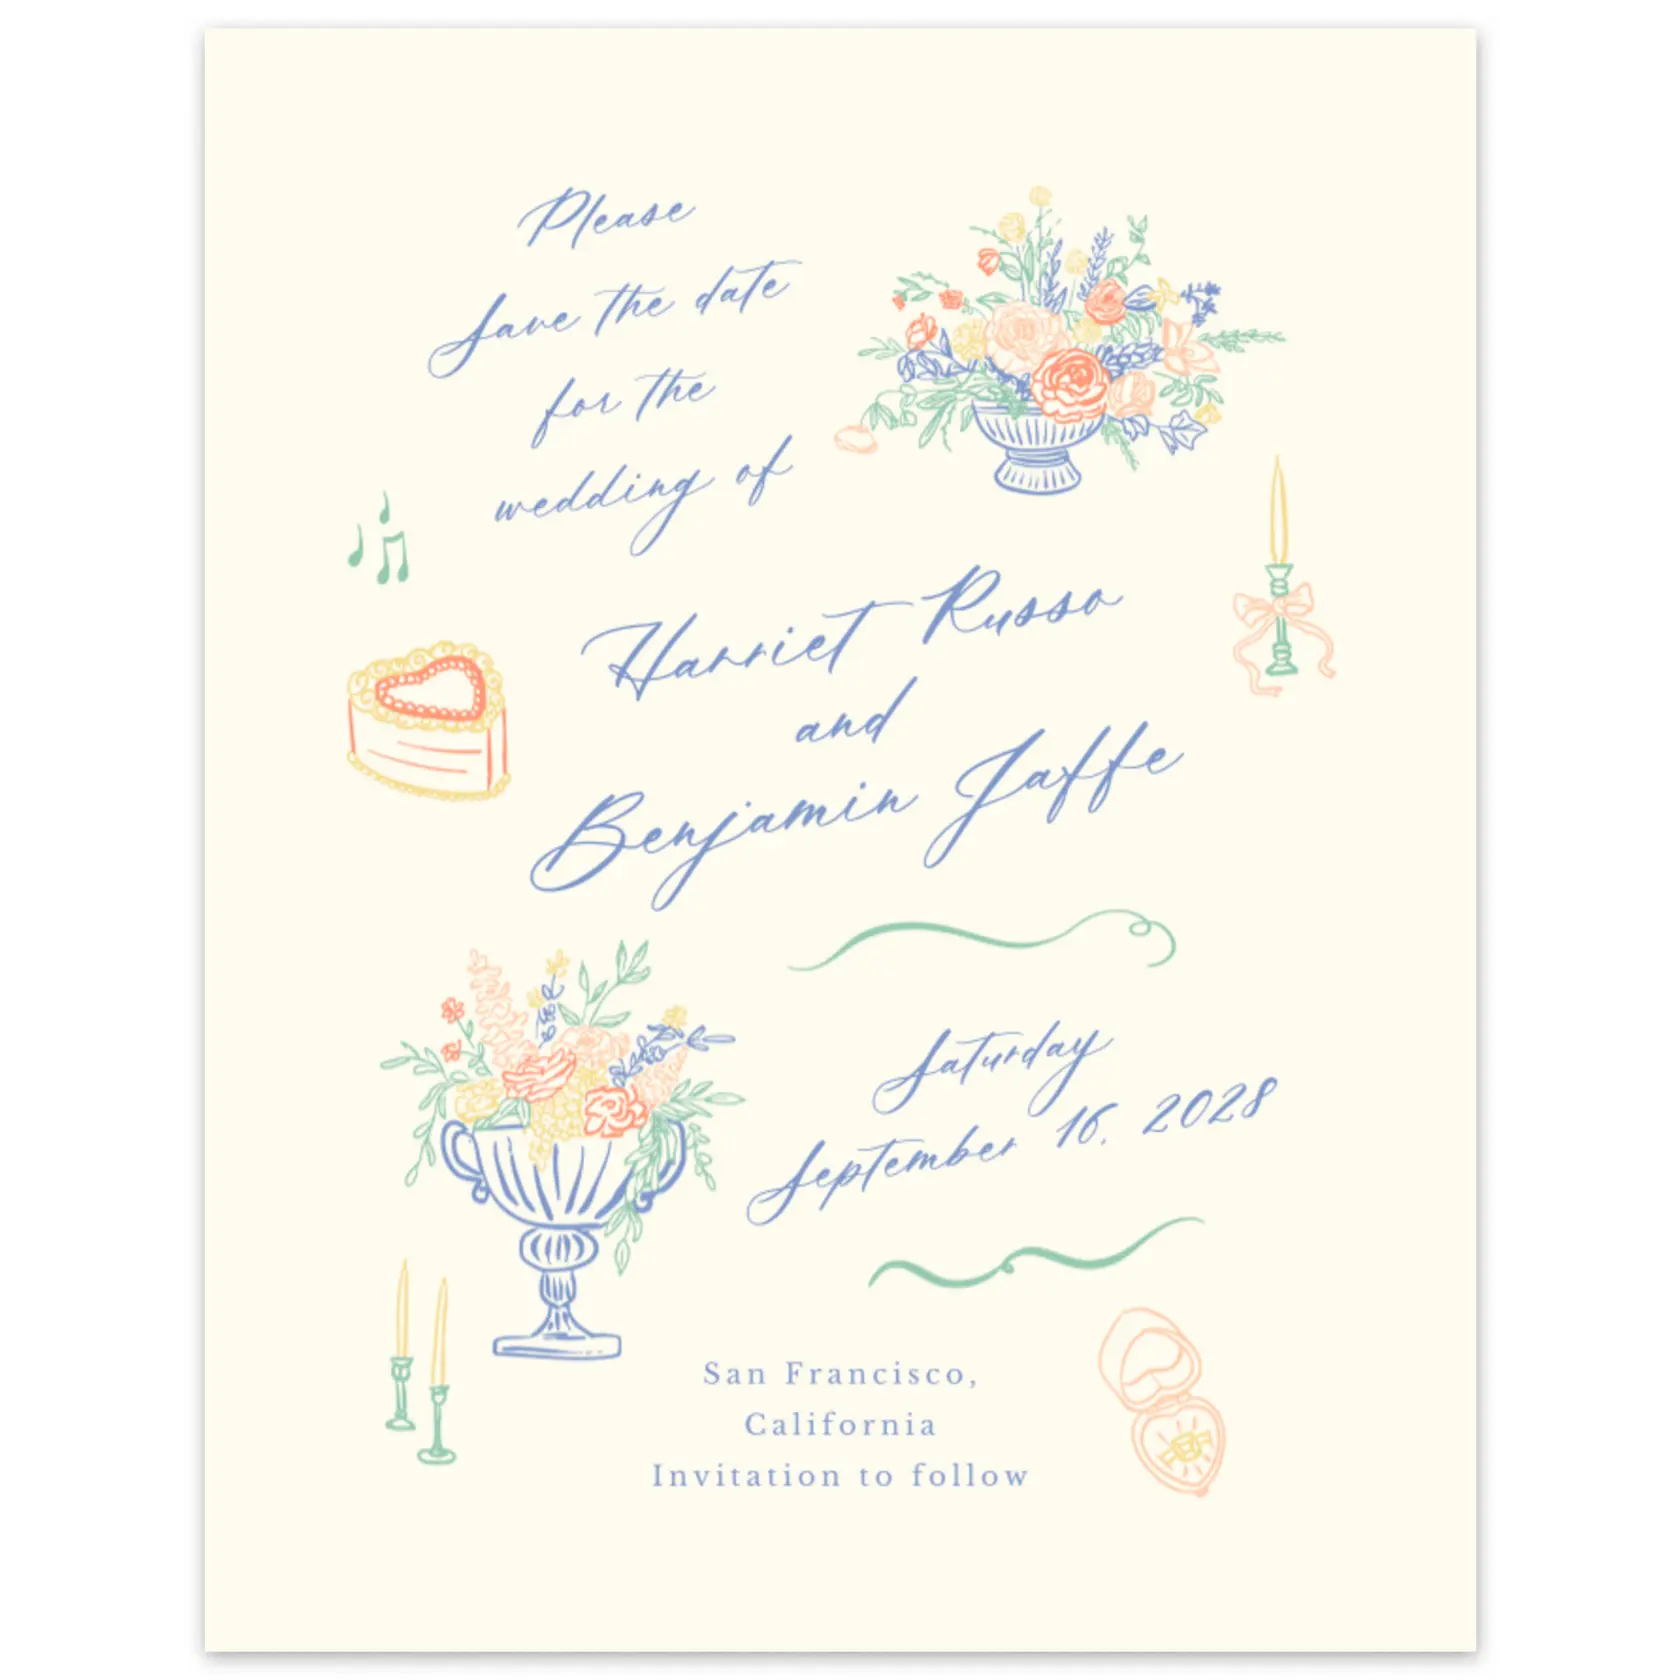 Please
save the date
for the
wedding of
Harriet Russo
and
Benjamin Jaffe
Saturday
September 16, 2028
San Francisco,
California
Invitation to follow